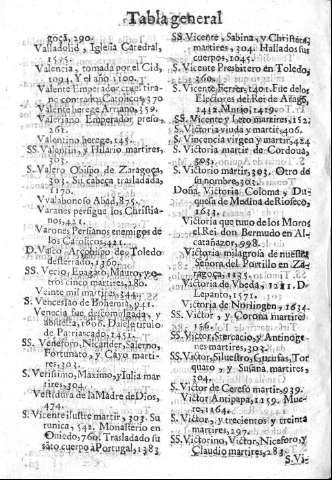 Tabla general
goça, 290.
Valladolid, Iglesia Catedral,
1575.
Valencia, tomada por el Cid,
1094. Y el año 1100.
Valente Emperador cruel tira-
no contra los Catolicos, 370
Valente herege Arriano, 359.
Valeriano Emperador preso,
261.
Valentino herege, 145.
SS. Valentin, y Hilario martires,
303.
S. Valero Obispo de Zaragoça,
301. Su cabeça trasladada,
1170.
Vvalabonoso Abad, 875.
Varanes persigue los Christia-
nos, 421.
Varones Persianos enemigos de
los Catolicos, 421.
D. Vasco Arçobispo de Toledo
desterrado, 1360.
SS. Verio, Epagato, Mauro, y o-
tros cinco martires, 280.
Veinte mil martires
S. Venceslao de Bohemia, 941.
Venecia fue descomulgada, y
absuelta, 1606. Diole titulo
de Patriarcado, 1451.
SS. Veneroso, Nicandro, Salerno,
Fortunato, y Cayo marti-
res, 303.
S. Verissimo, Maximo, y Iulia mar
tires, 304.
Vestidura de la Madre de Dios,
474.
S. Vicente ilustre martir, 303. Su
tunica, 542. Monasterio en
Oviedo, 760. Trasladado su
sãto cuerpo à Portugal, 1383
SS. Vicente, Sabina, y Christeta,
martires, 304. Hallados sus
cuerpos, 1045.
S. Vicente Presbitero en Toledo,
260.
S. Vicente Ferrer, 1401. Fue de los
Electores del Rei de Aragõ,
1412. Muriò, 1419.
SS. Vicente y Leto martires, 152.
S. Victoria viuda y martir, 406.
S. Vincencia virgen y martir, 424
S. Victoria martir de Cordoua,
303.
S. Victorio martir, 303. Otro de
su nombre, 303.
Doña Victoria Coloma, Du-
quesa de Medina de Rioseco,
1633.
Victoria que tuvo de los Moros
el Rei don Bermudo en Al-
catañazor, 998.
Victoria milagrosa de nuestra
Señora del Portillo en Za-
ragoça, 1135.
Victoria de Vbeda, 1281. De
Lepanto, 1571.
Victoria de Norlingen, 1634
SS. Victor, y Corona martires
156.
SS. Victor, Stercacio, y Antinoge-
nes martires, 303.
SS. Victor, Siluestro, Gucufas, Tor
quato, y Susana martires,
304.
S. Victor de Cereso martir, 939.
Victor Antipapa, 1159. Mue-
re, 1164.
S. Victor, y trecientos y treinta
martires, 297.
SS. Victorino, Victor, Niceforo, y
Claudio martires, 283.
S. Vi-